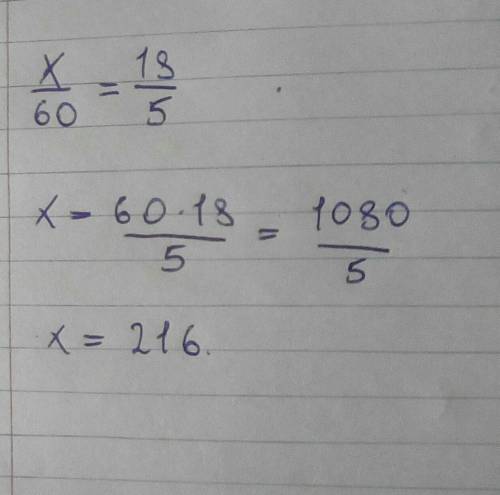 x/60 = 18/5
x = 60·18/5 = 1080/5
x = 216.